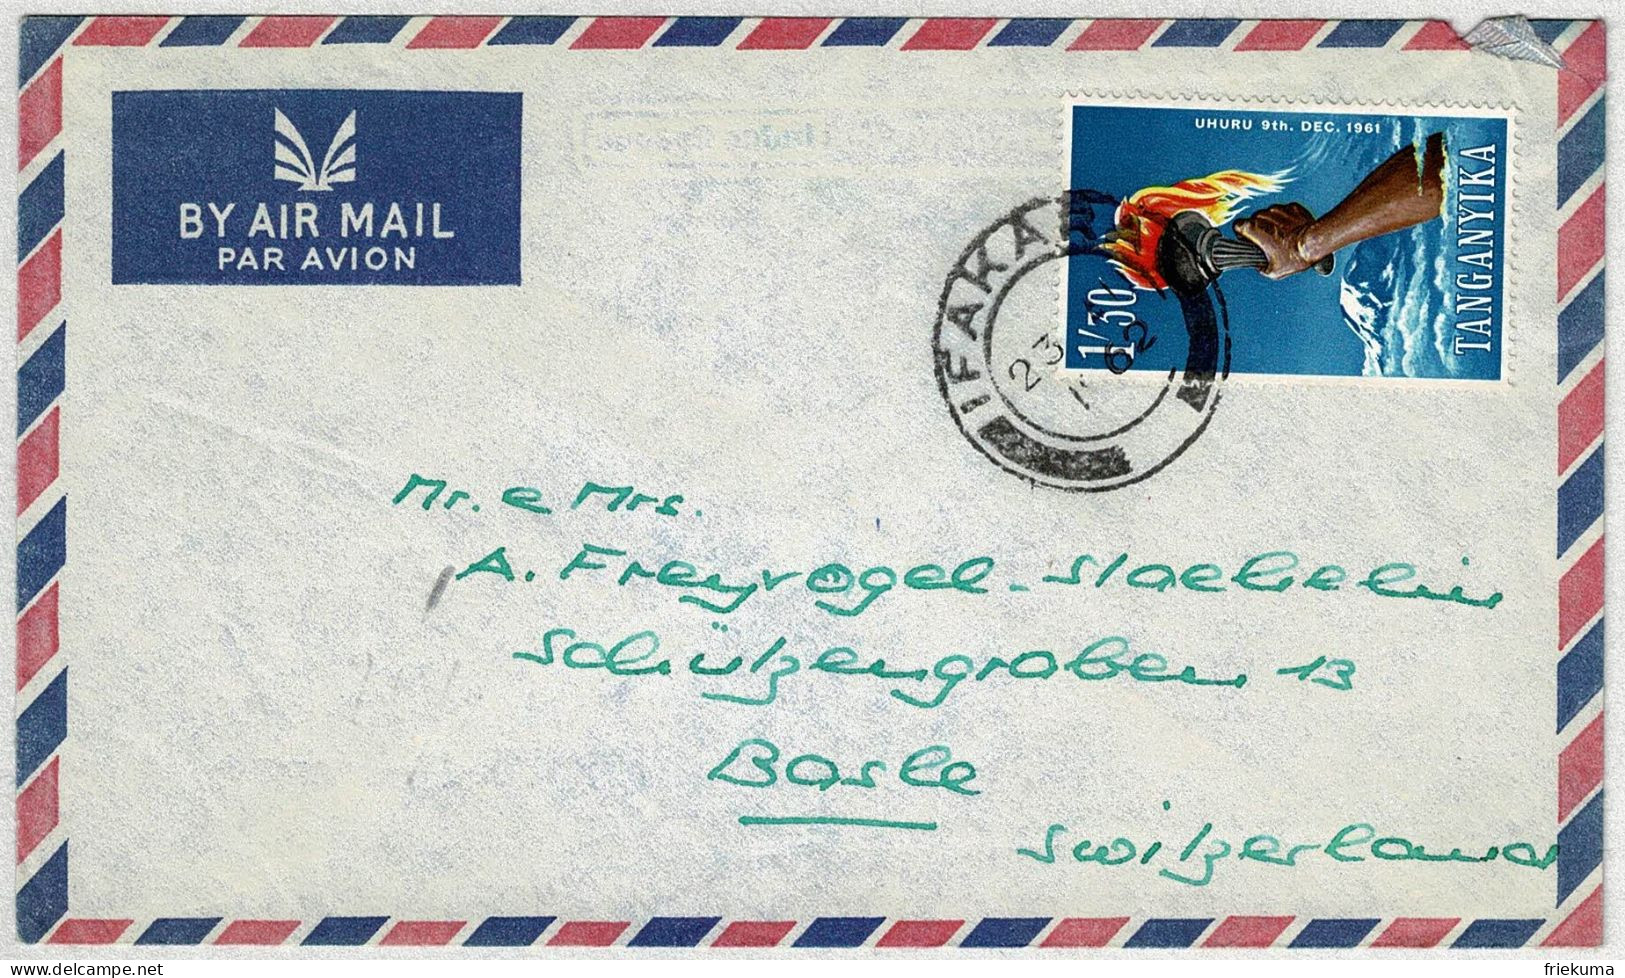 BY AIR MAIL
PAR AVION
UHURU 9th. DEC. 1961
TANGANYIKA
1/30
IFAKARA
23
62
Mr. e Mrs.
A. Freyvogel-Staehelin
Schützengraben 13
Basle
Switzerland
friekuma